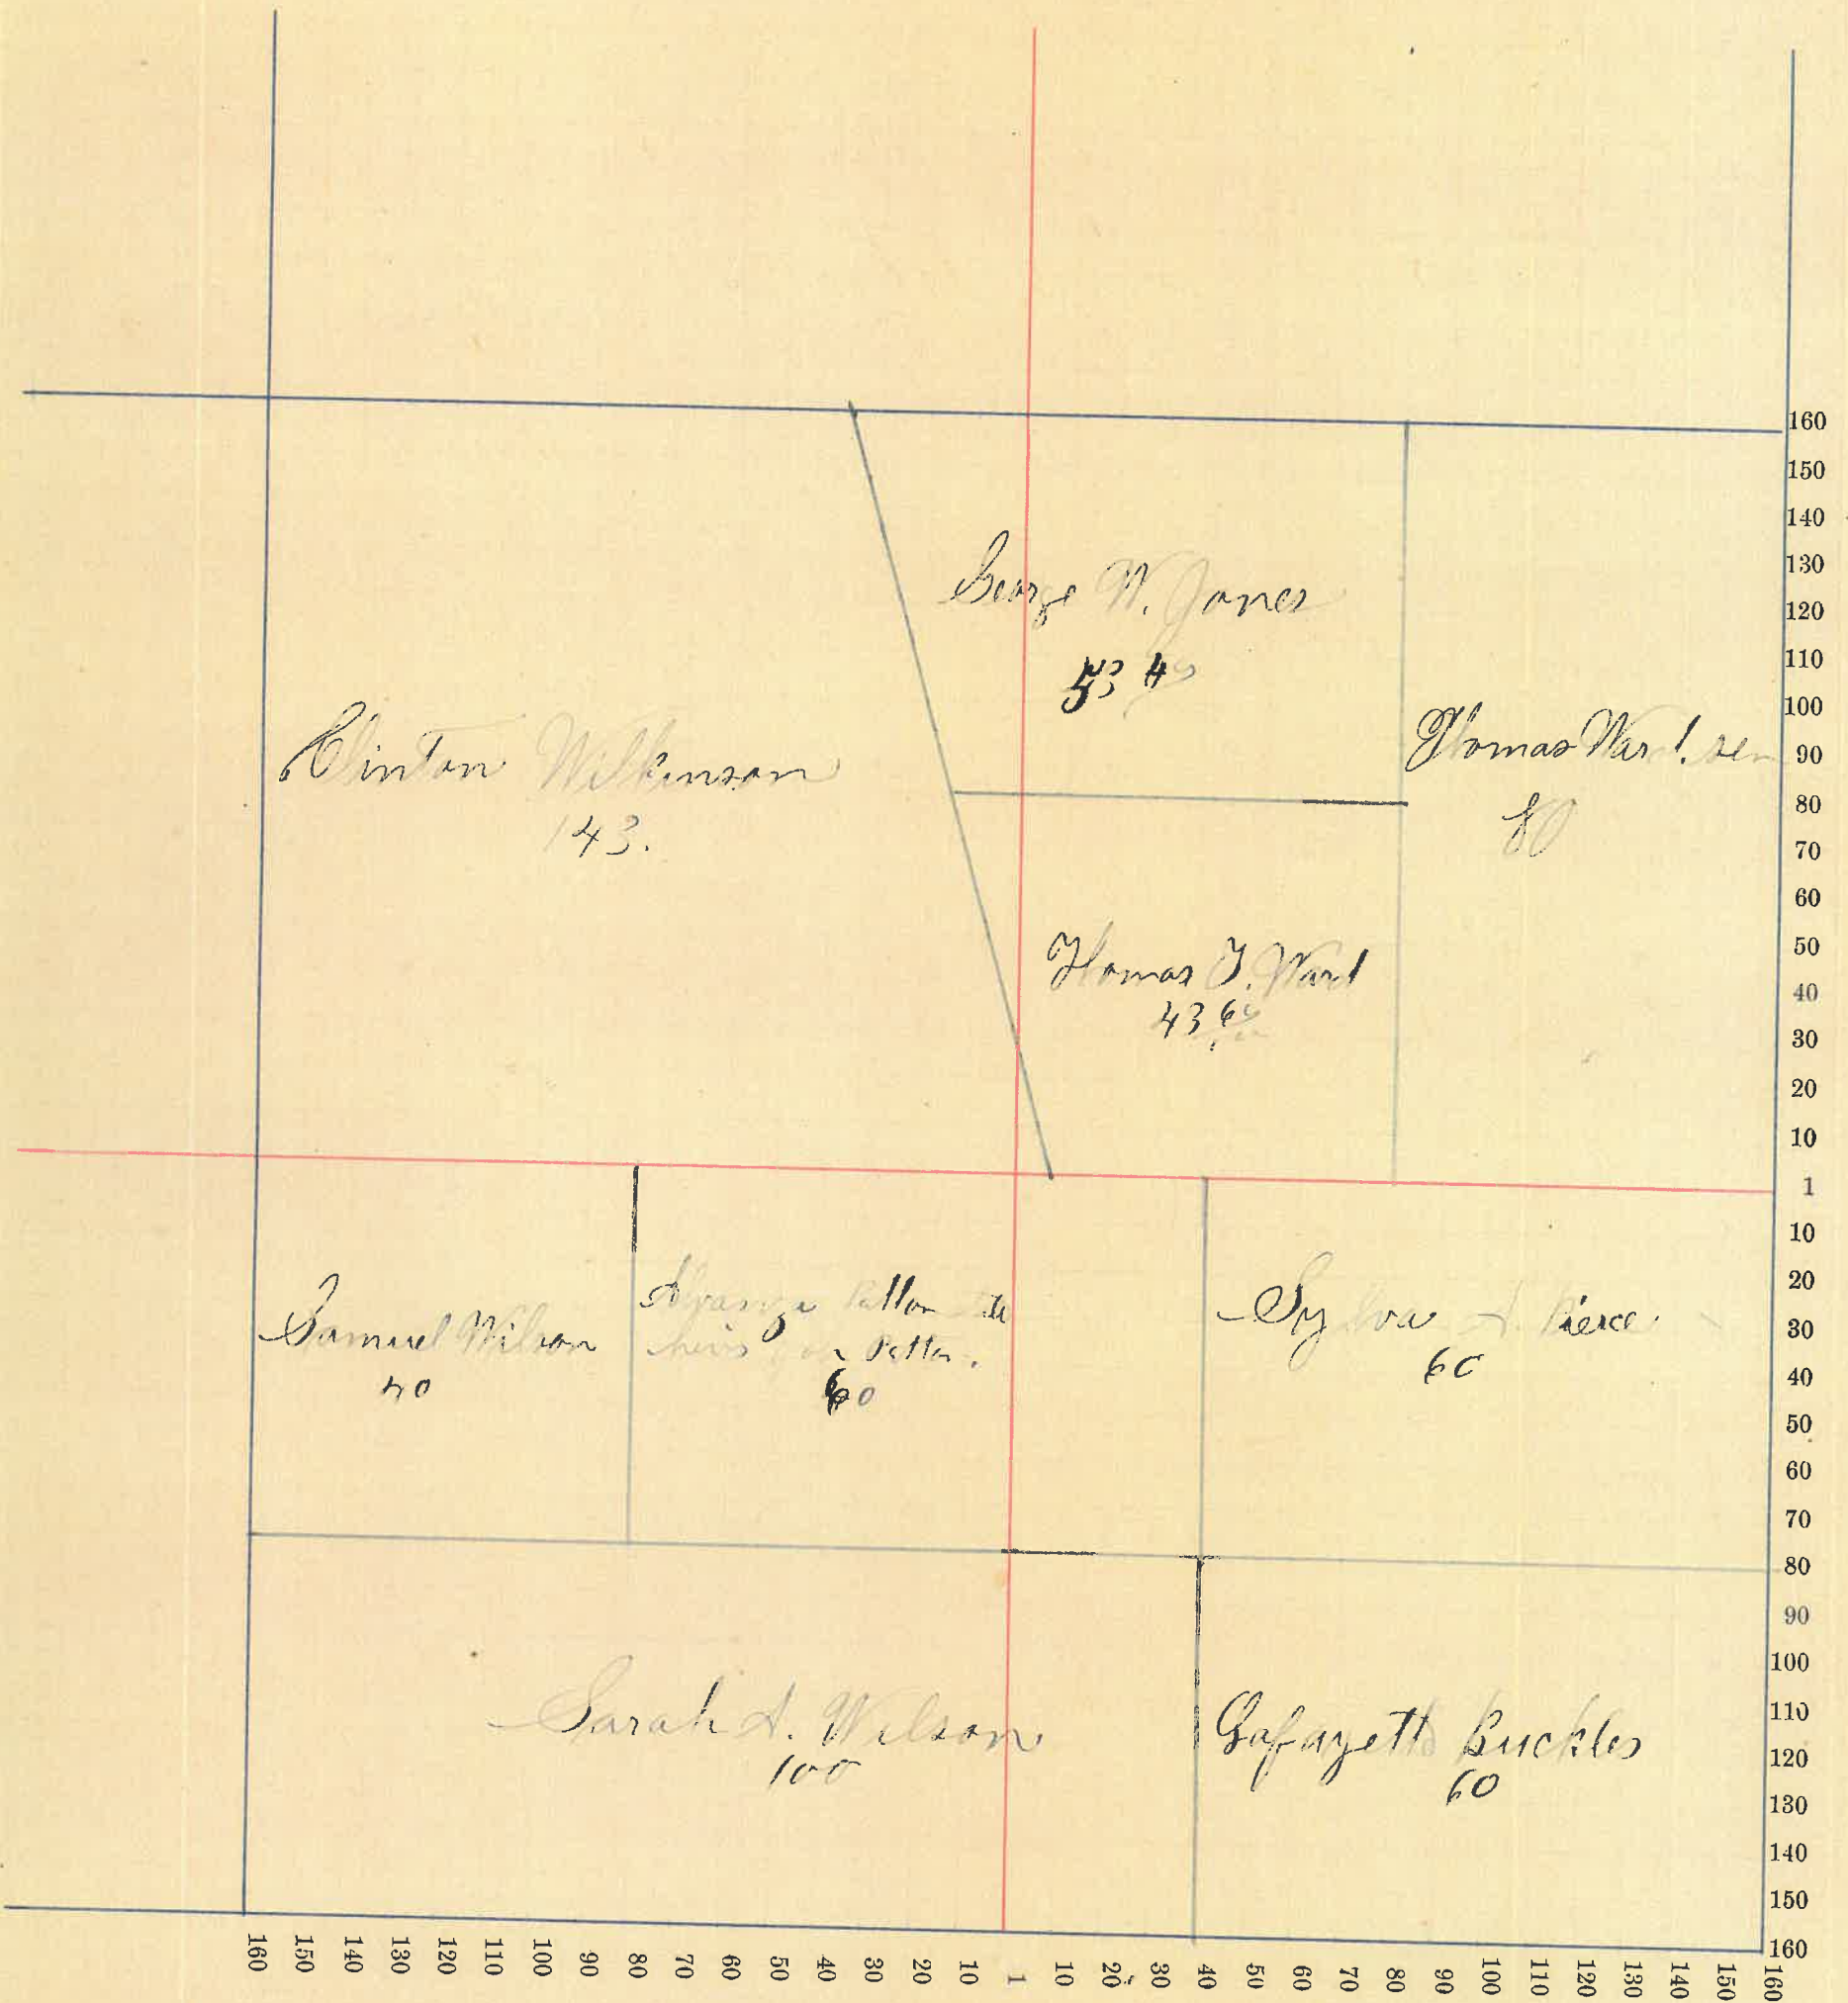 George W. Jones
53 4
Clinton Wilkinson
143.
Thomas Ward. sen
80
Thomas J. Ward
43 6
Samuel Wilson
40
Patton
heirs Patton.
60
Sylva A. Pierce
60
Sarah A. Wilson
100
Lafayette Buckles
60
160
150
140
130
120
110
100
90
80
70
60
50
40
30
20
10
1
10
20
30
40
50
60
70
80
90
100
110
120
130
140
150
160
160 150 140 130 120 110 100 90 80 70 60 50 40 30 20 10 1 10 20 30 40 50 60 70 80 90 100 110 120 130 140 150 160